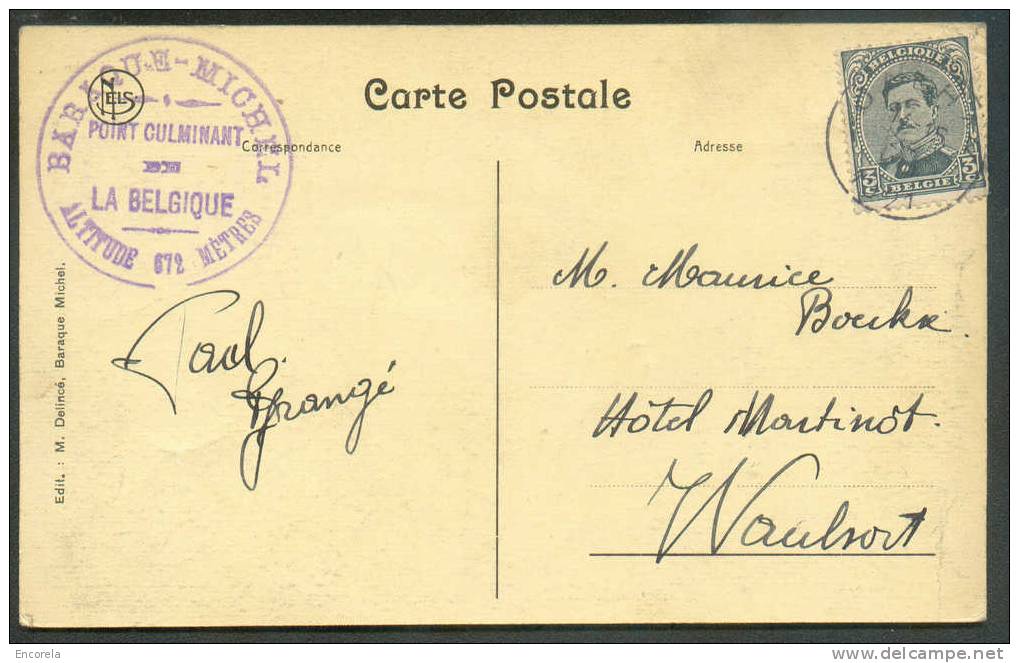 BARAQUE-MICHEL
NELS
POINT CULMINANT
DE
LA BELGIQUE
ALTITUDE 672 MÈTRES
Carte Postale
Correspondance
Adresse
BELGIQUE
3c 3c
BELGIE
21
M. Maurice
Boukx.
Hôtel Martinot.
Waulsort
Paul
Grangé
Edit. : M. Delincé, Baraque Michel.
Encorela
www.delcampe.net